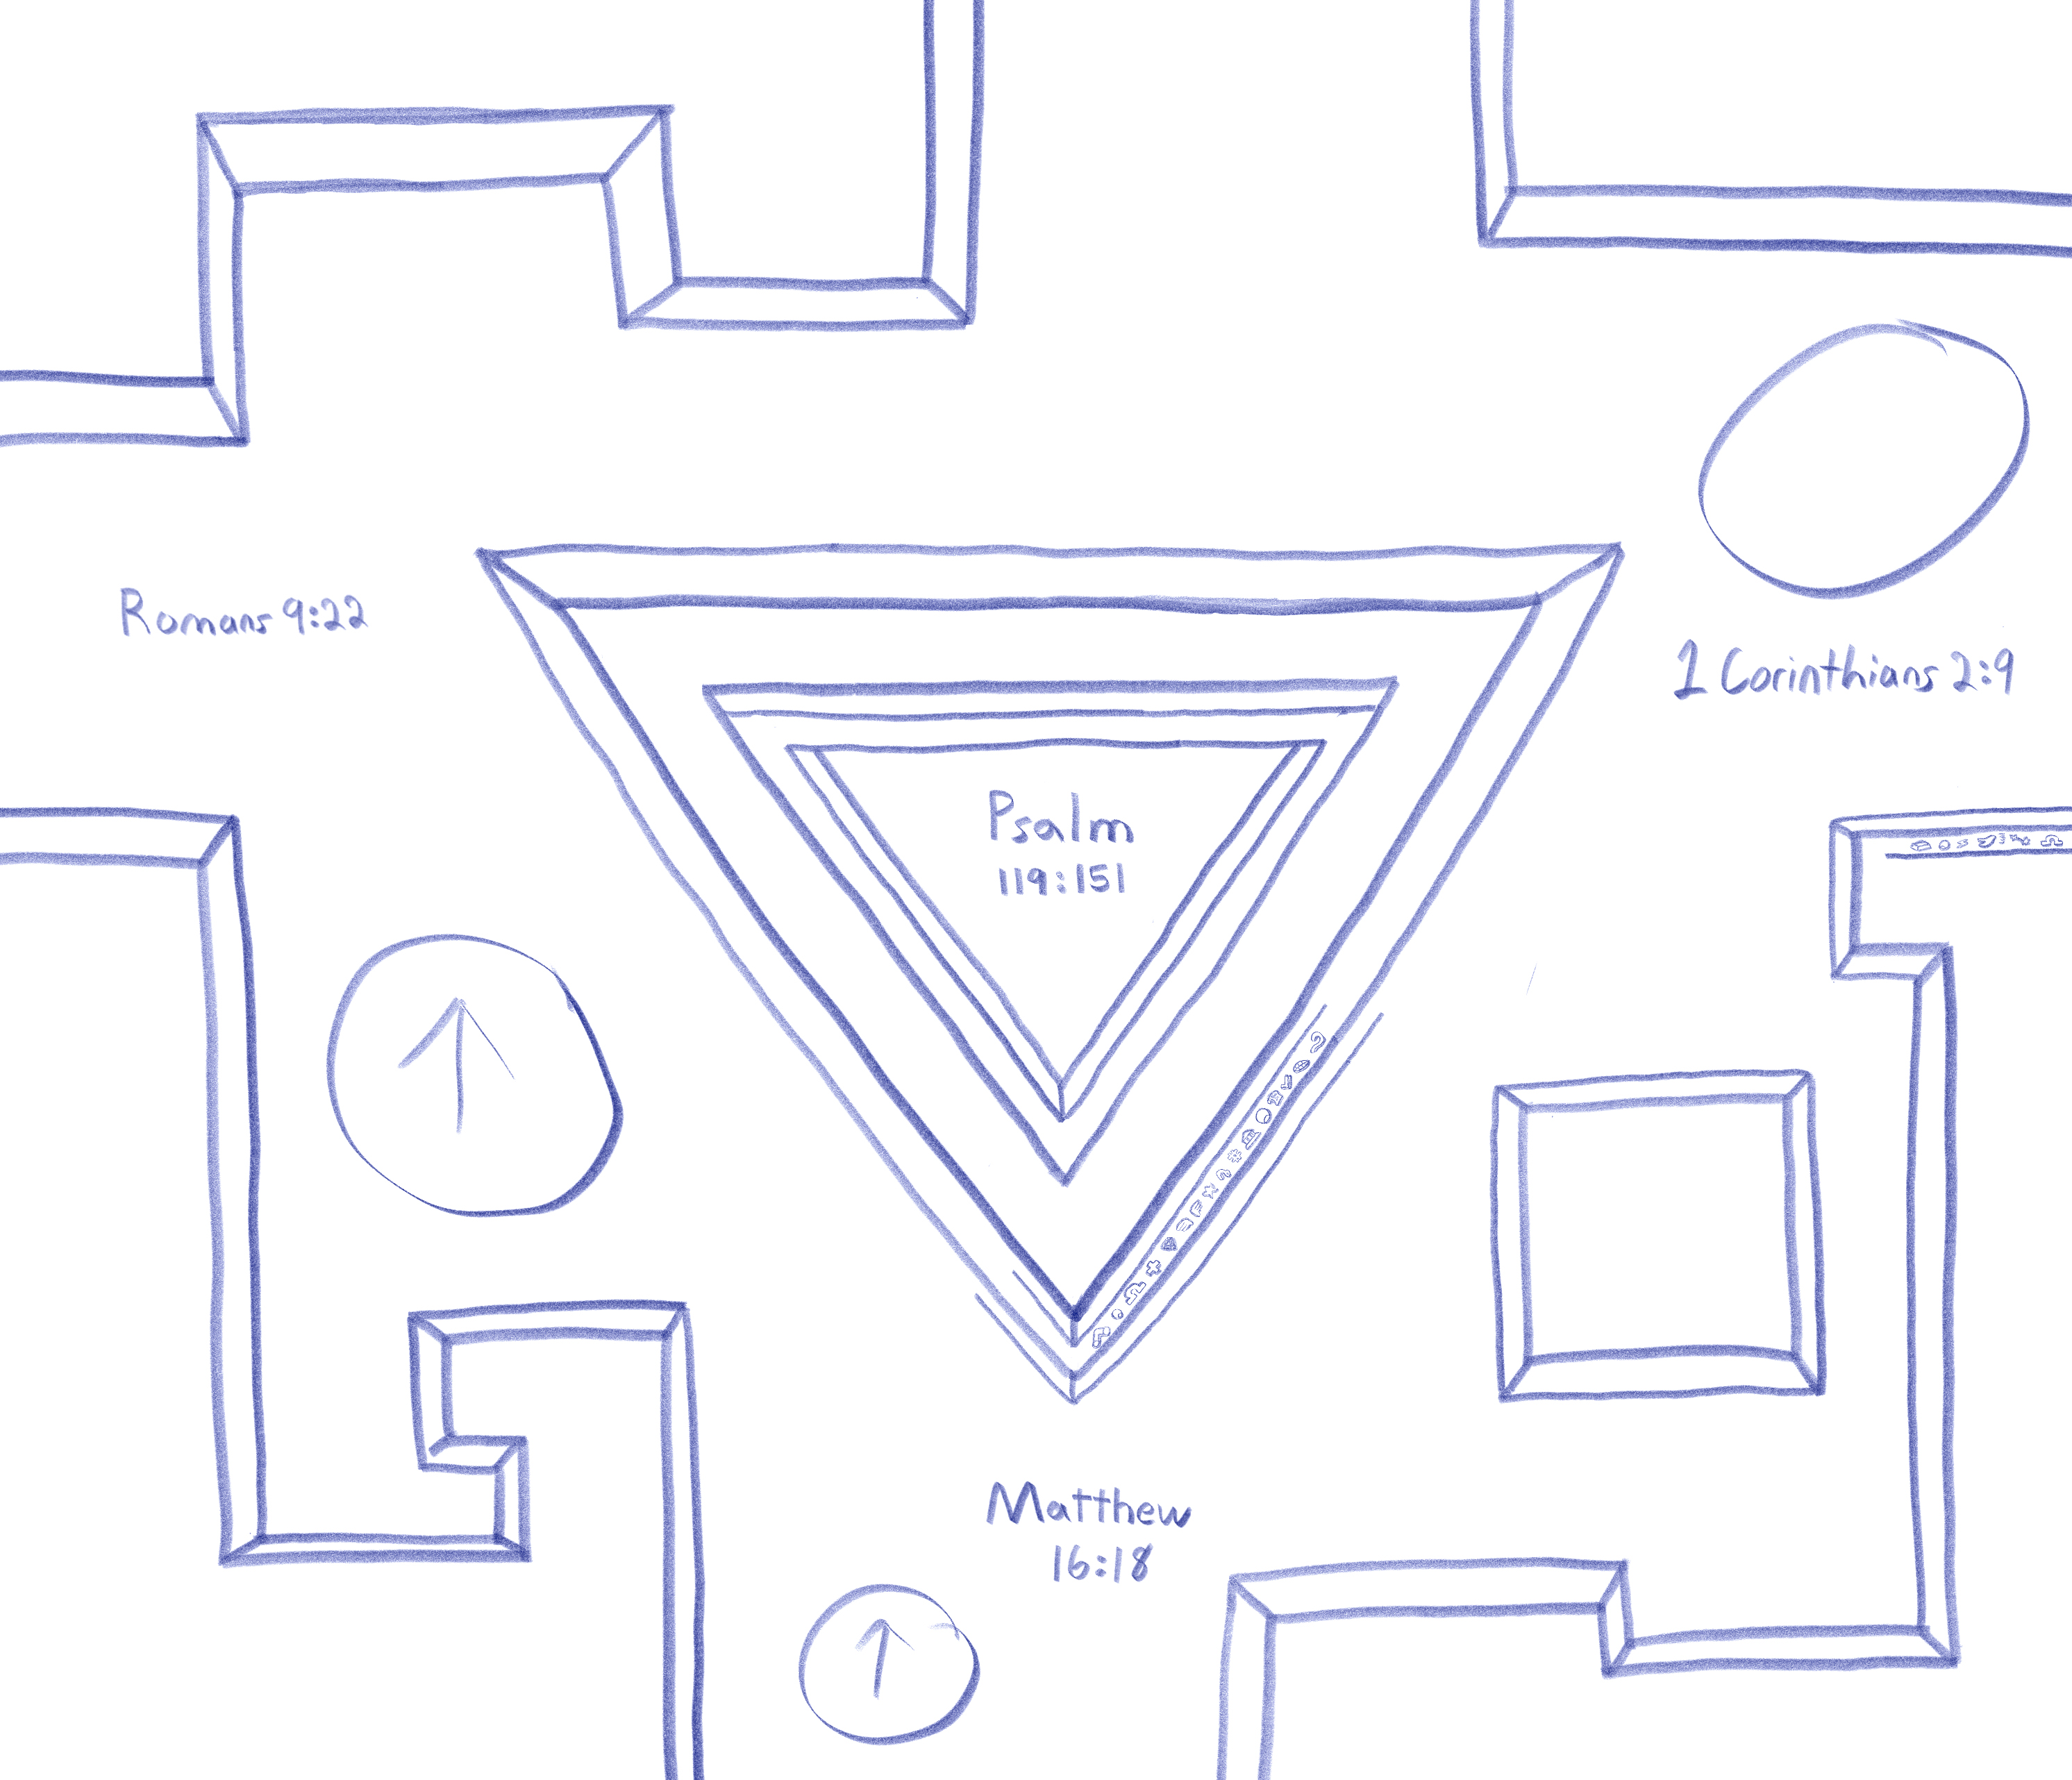 Romans 9:22
1 Corinthians 2:9
Psalm
119:151
Matthew
16:18